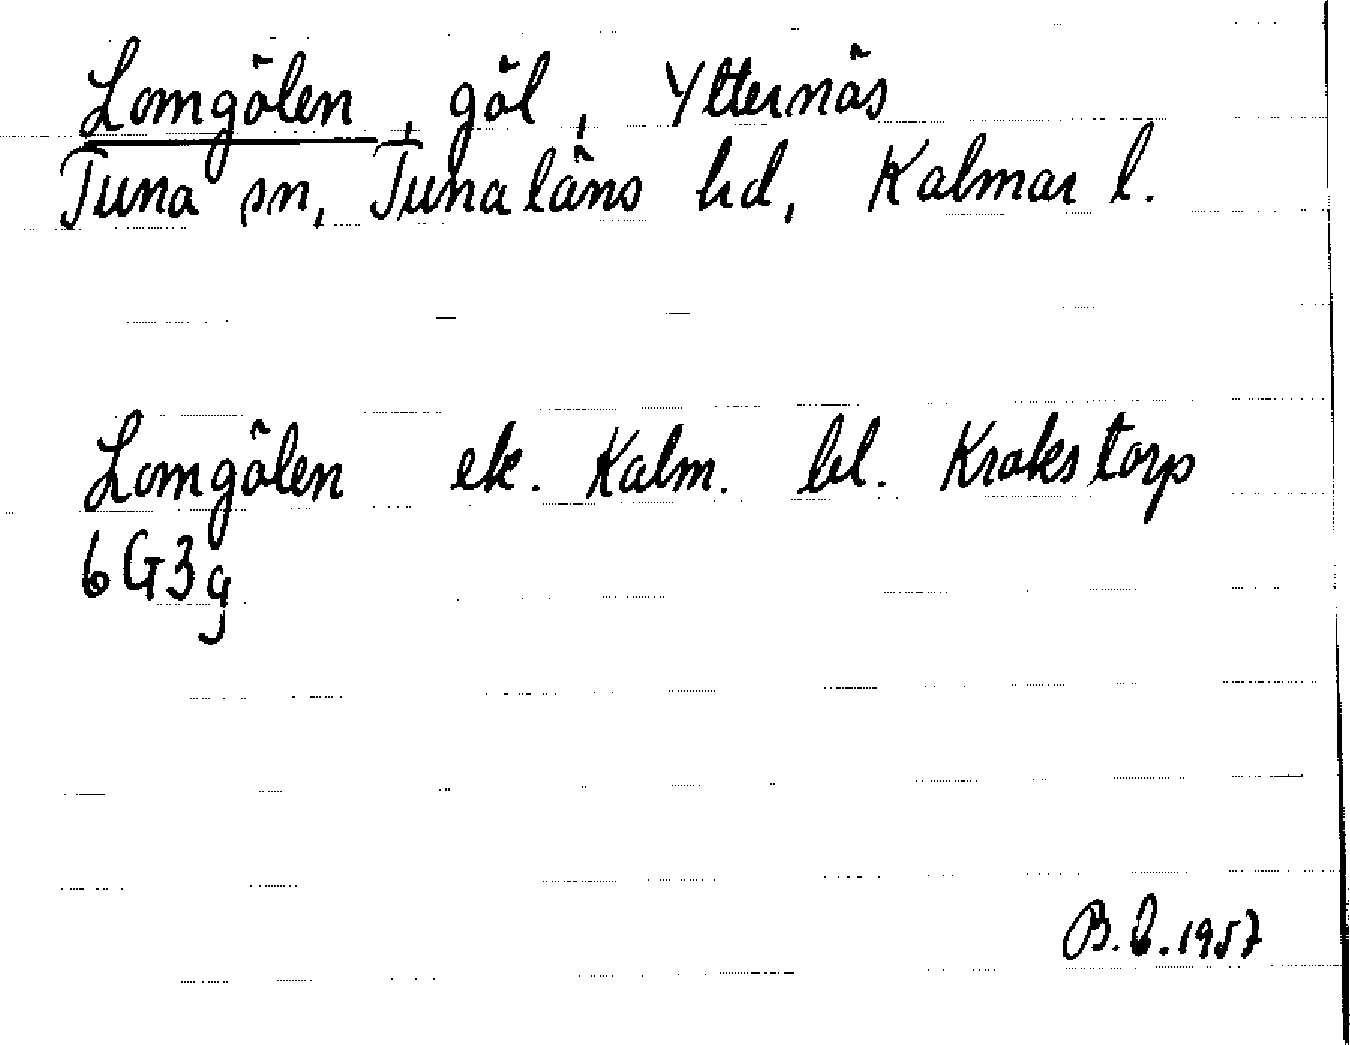 Lomgölen, göl, Ytternäs
Tuna sn, Tunaläns hd, Kalmar l.
Lomgölen ek. Kalm. bl. Krakstorp
6G3g
B.C. 1957